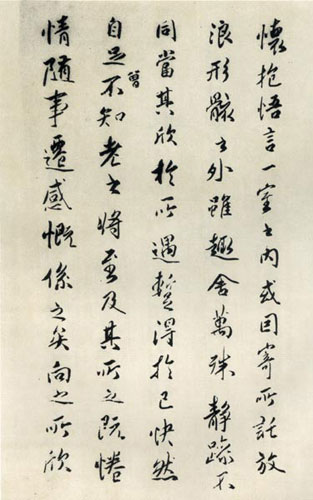 懷抱悟言一室之内或因寄所託放
浪形骸之外雖趣舍萬殊靜躁不
同當其欣於所遇蹔得於己快然
自足曾不知老之將至及其所之既惓
情随事遷感慨係之矣向之所欣